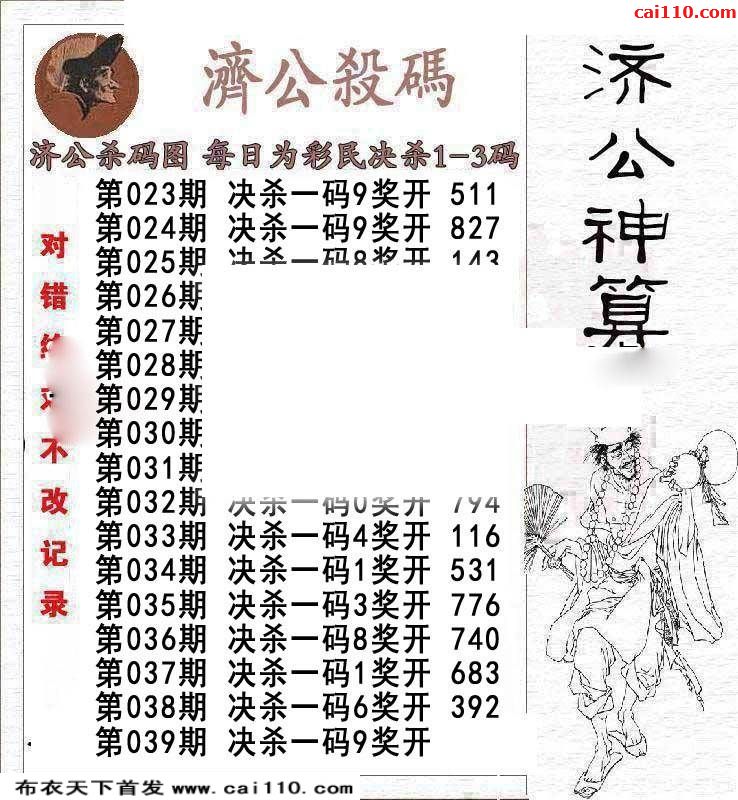 cai110.com
濟公殺碼
济公杀码图 每日为彩民决杀1-3码
第023期 决杀一码9奖开 511
第024期 决杀一码9奖开 827
第025期 决杀一码8奖开 143
第026期
第027期
第028期
第029期
第030期
第031期
第032期 决杀一码0奖开 794
第033期 决杀一码4奖开 116
第034期 决杀一码1奖开 531
第035期 决杀一码3奖开 776
第036期 决杀一码8奖开 740
第037期 决杀一码1奖开 683
第038期 决杀一码6奖开 392
第039期 决杀一码9奖开
对错不改记录
济公神算
布衣天下首发 www.cai110.com